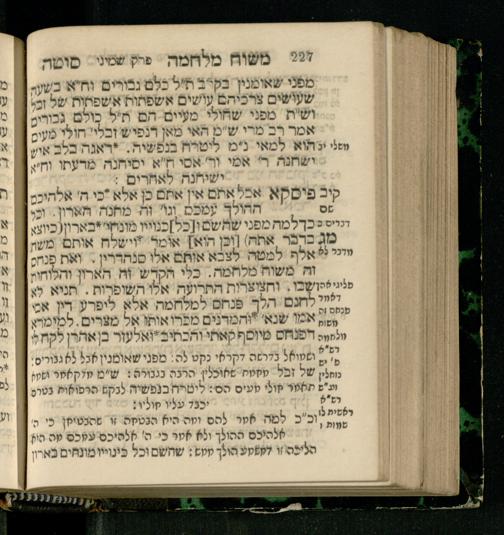 227 משוח מלחמה פרק שמיני סוטה
מפני שאומנין בקרב ת״ל כלם גבורים וח״א בשעה
שעושים צרכיהם עושים אשפתות אשפתות של זבל
וש״ת מפני שחולי מעיים הם ת״ל כולם גבורים
אמר רב מרי ש״מ האי מאן דנפיש זבלי׳ חולי מעים
משלי יב הוא למאי נ״מ ליטרח בנפשיה. *דאגה בלב איש
ישחנה ר׳ אמי ור׳ אסי ח״א יסיחנה מדעתו וח״א
ישיחנה לאחרים :
קיב פיסקא אבל אתם אין אתם כן אלא *כי ה׳ אלהיכם
שם ההולך עמכם וגו׳ זה מחנה הארון. וכל
דברים ב כך למה מפני שהשם [וכל] כנוייו מונחי׳ *בארון (כיוצא
מג בדבר אתה) [וכן הוא] אומר *וישלח אותם משה
מדבר לא אלף למטה לצבא אותם אלו סנהדרין. ואת פנחס
זה משוח מלחמה. כלי הקדש זה הארון והלוחות
שבו. וחצוצרות התרועה אלו השופרות. תניא לא
לחנם הלך פנחס למלחמה אלא ליפרע דין אמי
אמו שנא׳ *והמדנים מכרו אותו אל מצרים. למימרא
דפנחס מיוסף קאתי והכתיב *ואלעזר בן אהרן לקח לו
ושמואל בדרשה דקראי נקט לה: מפני שאומנין אבל לא גבורים:
של זבל שאוכלין הרבה בגבורה: ש״מ
תאמר חולי מעים הם: ליטרח בנפשיה לבקש הרפואות בטרם
יכבד עליו חוליו:
וכ״כ למה אמר להם ומה היא הבטחה זו שהבטיחן כי ה׳
אלהיכם ההולך ולא אמר כי ה׳ אלהיכם עמכם מה היא
הליכה זו הולך ממש: שהשם וכל כינוייו מונחים בארון